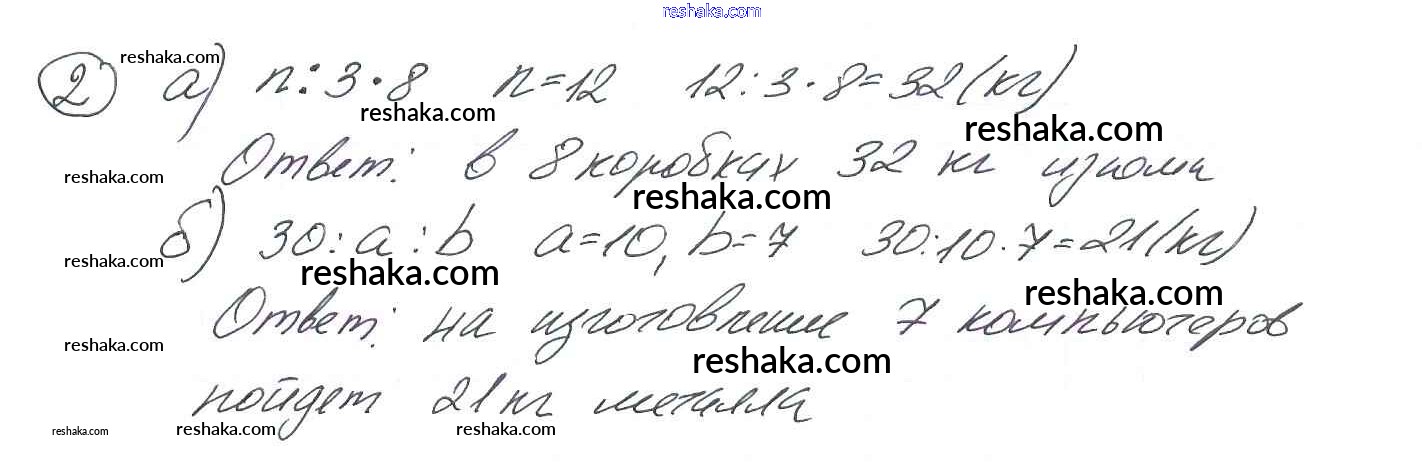 reshaka.com
② а) n : 3 · 8 n = 12 12 : 3 · 8 = 32 (кг)
reshaka.com
reshaka.com
reshaka.com
Ответ: в 8 коробках 32 кг изюма
reshaka.com
reshaka.com
б) 30 : a : b a = 10, b = 7 30 : 10 · 7 = 21 (кг)
reshaka.com
reshaka.com
reshaka.com
Ответ: на изготовление 7 компьютеров
reshaka.com
reshaka.com
пойдет 21 кг металла
reshaka.com
reshaka.com
reshaka.com